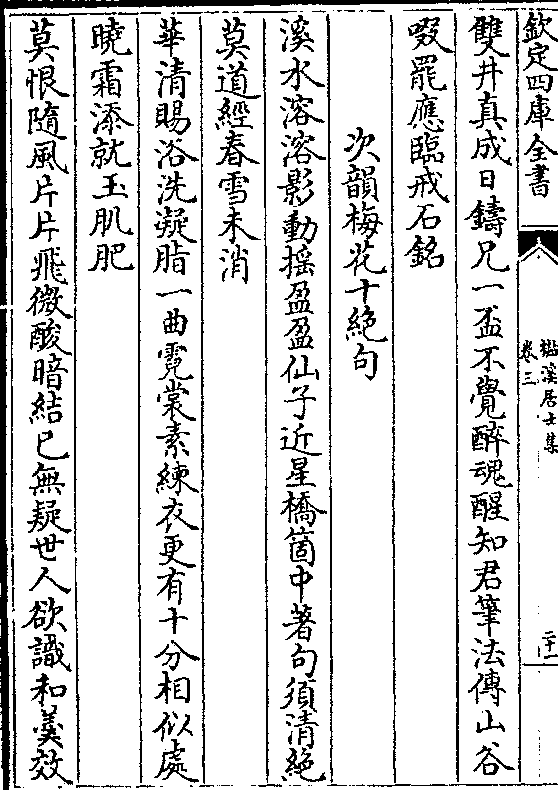 欽定四庫全書
䂬溪居士集
卷三
二十一
雙井真成日鑄兄一盃不覺醉魂醒知君筆法傳山谷
啜罷應臨戒石銘
次韻梅花十絶句
溪水溶溶影動揺盈盈仙子近星橋箇中著句須清絶
莫道經春雪未消
華清賜浴洗凝脂一曲霓裳素練衣更有十分相似處
曉霜添就玉肌肥
莫恨隨風片片飛微酸暗結已無疑世人欲識和羮效